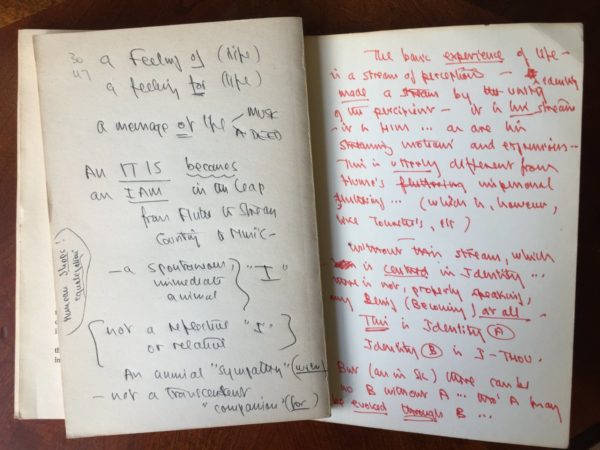 30
47
a feeling of (life)
a feeling for (life)
a menage of life
MUSK
A DEED
An IT IS becomes
an I AM in a leap
from Flutter to Stream
Counting to Music -
Human Shoes!
- a spontaneous,
immediate
animal
"I"
not a reflective "I"
or relative
An animal "sympathy" (with)
- not a transcendent
"companion" (for)
The basic experience of life -
is a stream of perceptions - identity
made a stream by the unity
of the percipient - it is his stream
- it is Him ... as are his
streaming motions and expansions -
This is utterly different from
Hume's fluttering impersonal
fluttering ... (which is, however,
)
Without this stream, which
is centred in Identity ...
there is not, properly speaking,
any Being (Becoming) at all -
This is Identity A
Identity B is I-THOU.
But (as in SK) there can be
no B without A ... tho' A may
be evoked through B ...